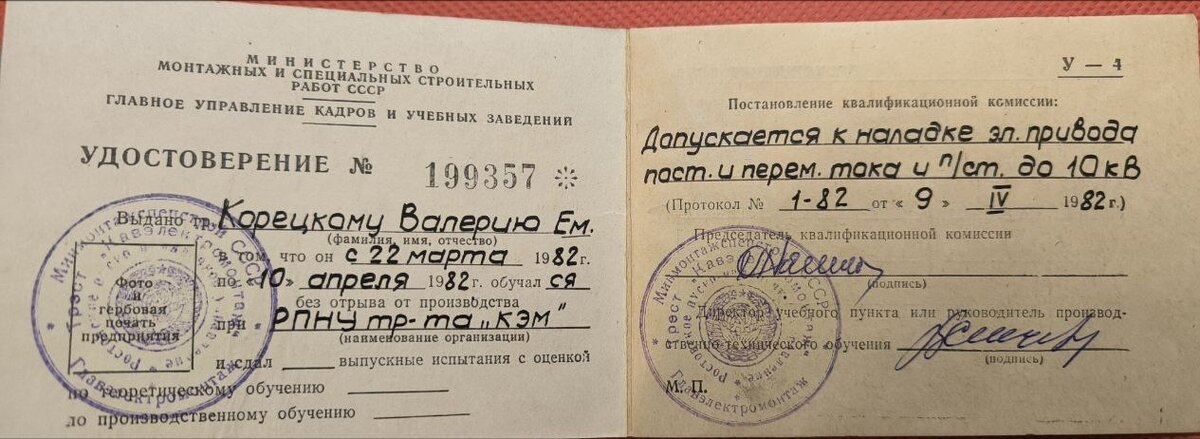 МИНИСТЕРСТВО
МОНТАЖНЫХ И СПЕЦИАЛЬНЫХ СТРОИТЕЛЬНЫХ
РАБОТ СССР
ГЛАВНОЕ УПРАВЛЕНИЕ КАДРОВ И УЧЕБНЫХ ЗАВЕДЕНИЙ
УДОСТОВЕРЕНИЕ № 199357
Выдано тр. Корецкому Валерию Ем.
(фамилия, имя, отчество)
в том что он с 22 марта 1982 г.
по «10» апреля 1982 г. обучал ся
без отрыва от производства
при РПНУ тр-та „КЭМ"
(наименование организации)
и сдал выпускные испытания с оценкой
по теоретическому обучению
по производственному обучению
Фото
и
гербовая
печать
предприятия
Минмонтажспецстрой СССР
Главэлектромонтаж
трест "Кавэлектромонтаж"
У — 4
Постановление квалификационной комиссии:
Допускается к наладке эл. привода
пост. и перем. тока и п/ст. до 10 кВ
(Протокол № 1-82 от « 9 » IV 1982 г.)
Председатель квалификационной комиссии
(подпись)
Директор учебного пункта или руководитель производ-
ственно-технического обучения
(подпись)
М. П.
Минмонтажспецстрой СССР
Главэлектромонтаж
трест "Кавэлектромонтаж"